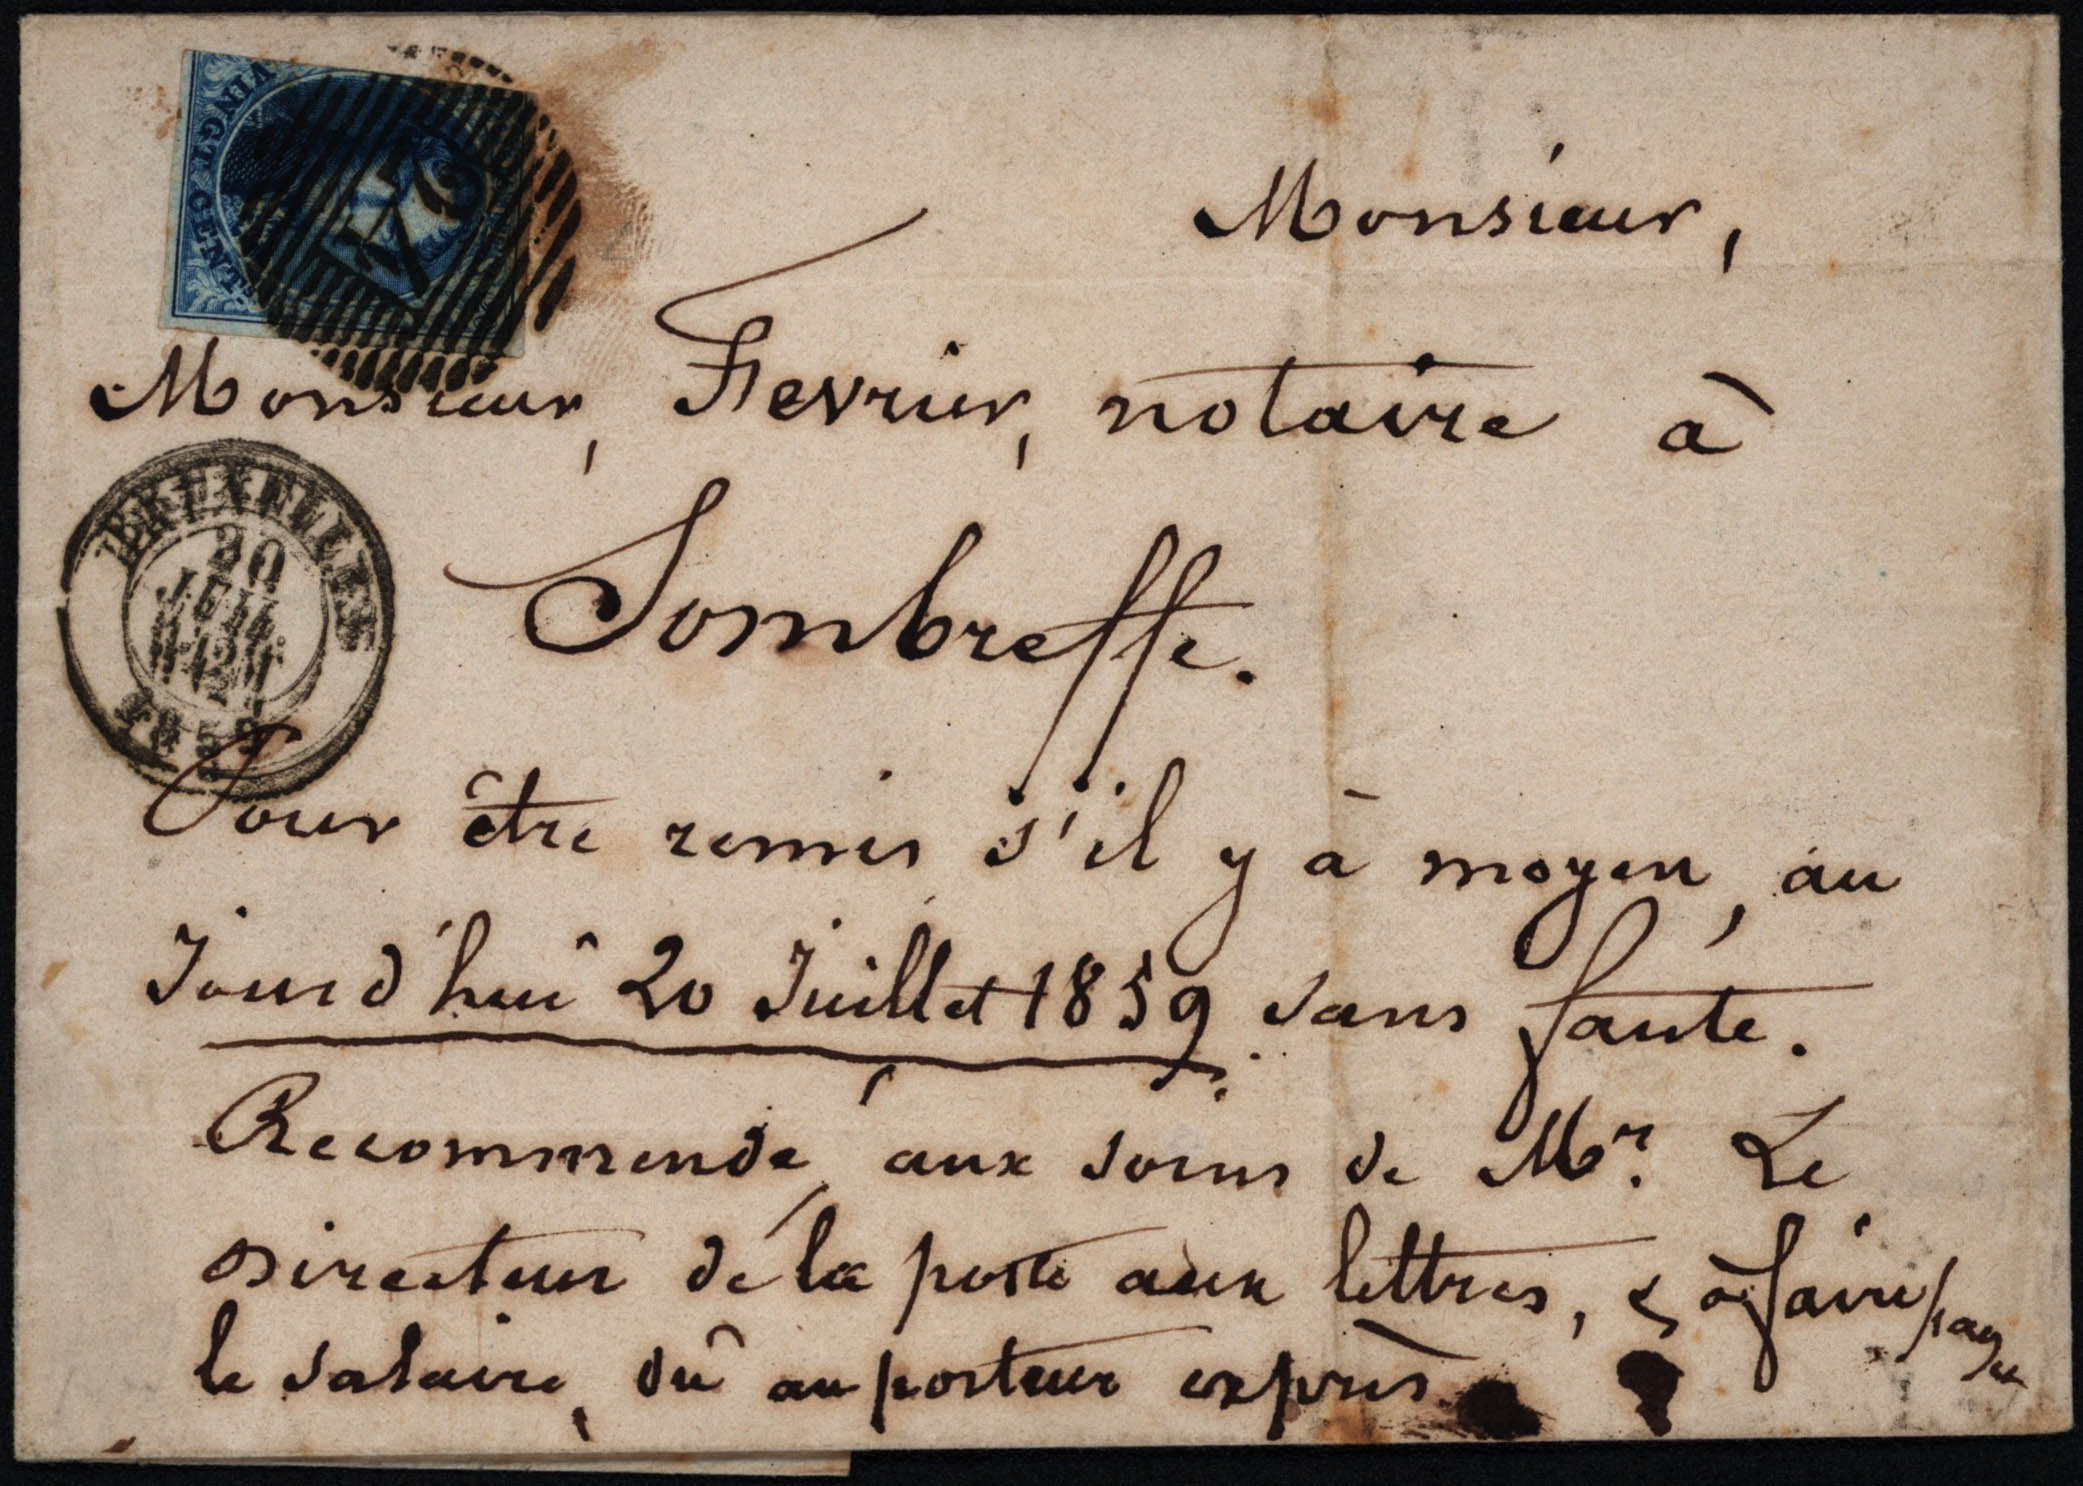 VINGT CENT.
Monsieur,
Monsieur, Fevrier, notaire à
Sombreffe.
BRUXELLES
20
JUIL.
1859
Pour être remis s'il y à moyen, au
Jourd'hui 20 Juillet 1859 sans faute.
Recommendé, aux soins de Mr. Le
Directeur de la poste aux lettres, & à faire payer
le salaire, dû au porteur exprès